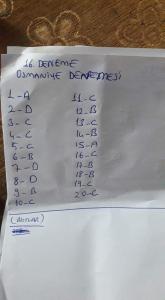 16. DENEME
OSMANİYE DENEMESİ
1-A
2-D
3-C
4-C
5-C
6-B
7-D
8-D
9-B
10-C
11-C
12-B
13-C
14-B
15-A
16-C
17-B
18-B
19-C
20-C